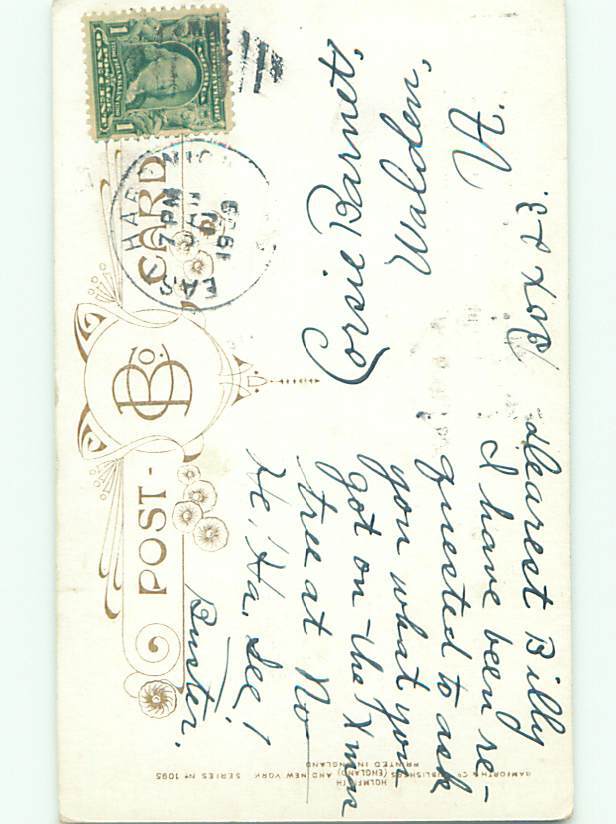 Dearest Billy
I have been re-
quested to ask
you what you
got on the Xmas
tree at No
He, Ha, See!
Buster.
Corsie Barnet,
Walden,
Vt.
Box 23.
POST-CARD
B Co.
7 PM
JAN
19
1
BAMFORTH & Co PUBLISHERS (ENGLAND) AND NEW YORK SERIES No 1095
HOLMFIRTH
PRINTED IN ENGLAND